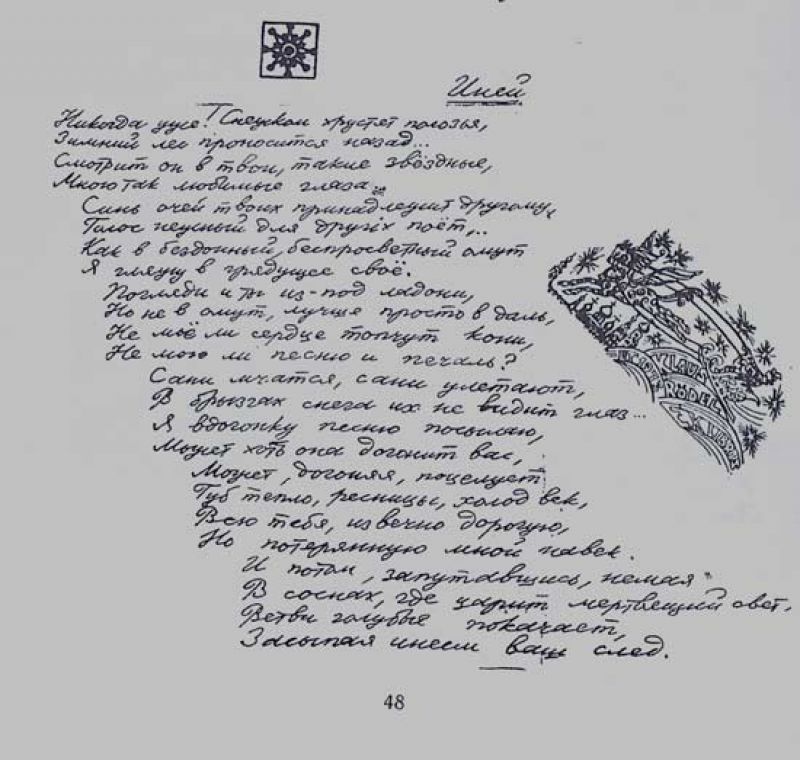 Иней
Никогда уже! Снежком хрустят полозья,
Зимний лес проносится назад...
Смотрит он в твои, такие звёздные,
Мною так любимые глаза...
Синь очей твоих принадлежит другому,
Голос нежный для других поёт...
Как в бездонный, беспросветный омут
Я гляжу в грядущее своё.
Погляди и ты из-под ладони,
Но не в омут, лучше просто в даль,
Не моё ли сердце топчут кони,
Не мою ли песню и печаль?
Сани мчатся, сани улетают,
В брызгах снега их не видит глаз...
Я вдогонку песню посылаю,
Может хоть она догонит вас,
Может, догоняя, поцелует
Губ тепло, ресницы, холод век,
Всю тебя, извечно дорогую,
Но потерянную мной навек.
И потом, запутавшись, немая
В соснах, где царит мертвецкий свет,
Ветви голубые покачает,
Засыпая инеем ваш след.
KLAUS
RÖDEL
48